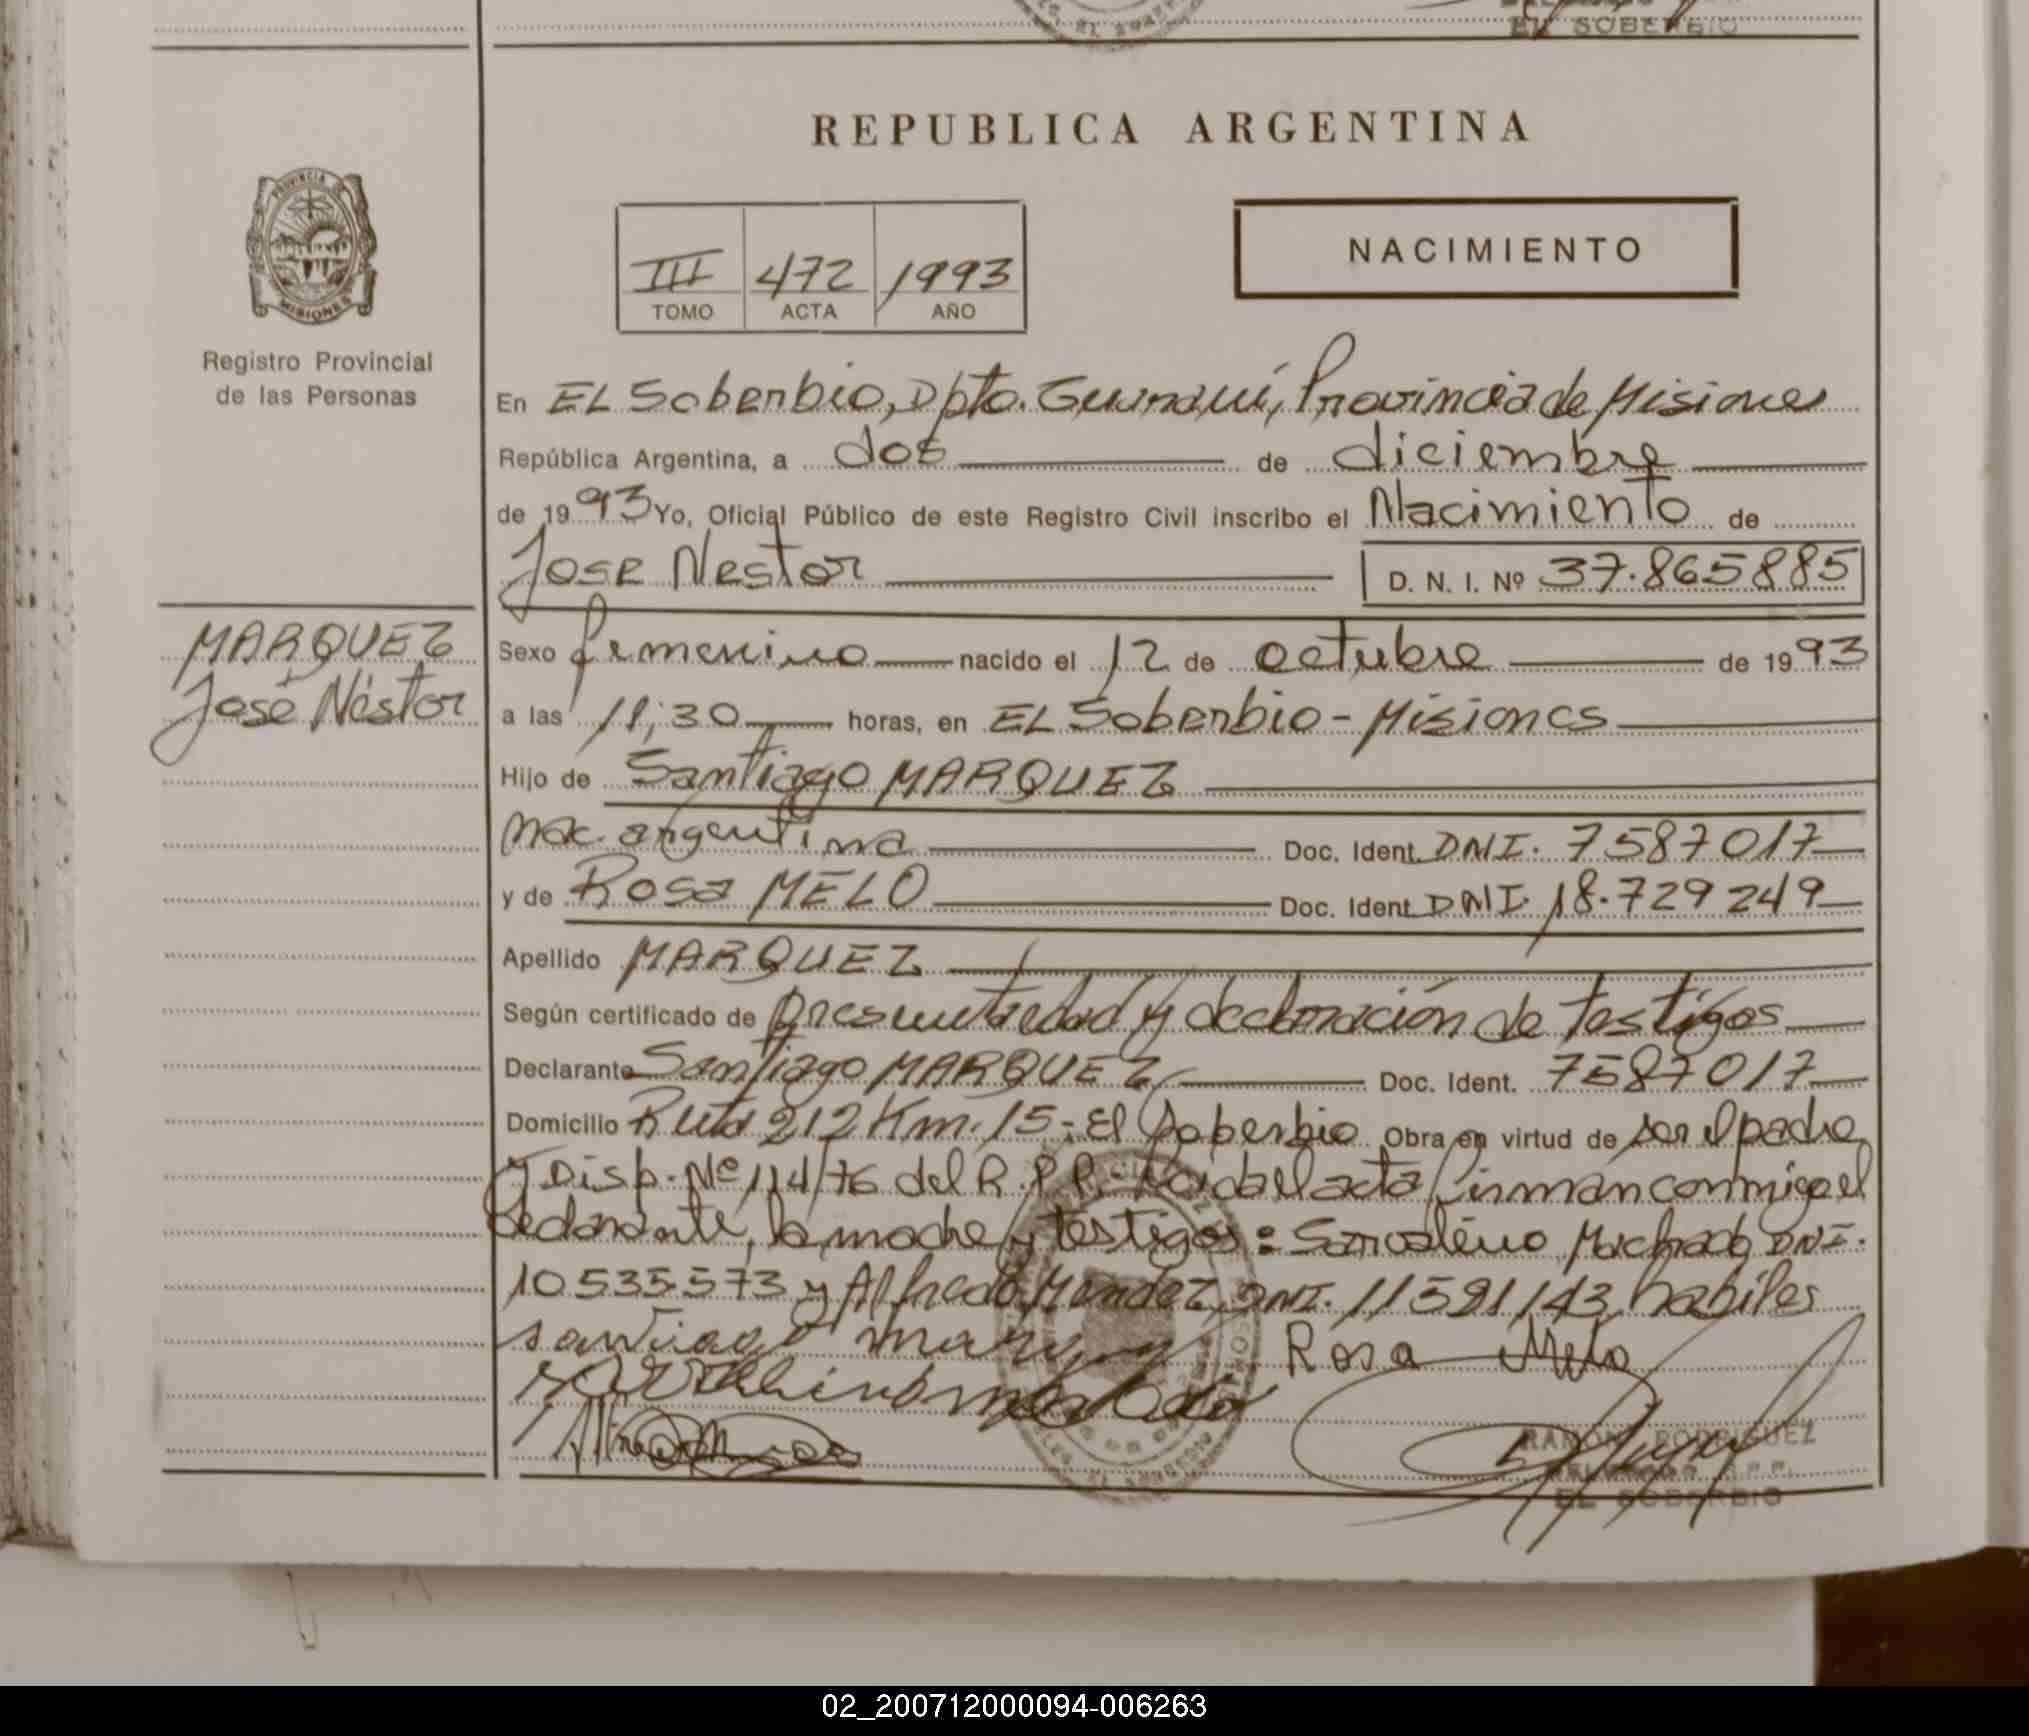 EL SOBERBIO
REPUBLICA ARGENTINA
PROVINCIA DE
MISIONES
Registro Provincial
de las Personas
III 472 1993
TOMO ACTA AÑO
NACIMIENTO
En EL Soberbio, Dpto. Guaraní, Provincia de Misiones
República Argentina, a dos de diciembre
de 1993 Yo, Oficial Público de este Registro Civil inscribo el Nacimiento de
Jose Nestor D. N. I. Nº 37.865885
MARQUEZ
José Néstor
Sexo femenino nacido el 12 de octubre de 1993
a las 11,30 horas, en EL Soberbio - Misiones
Hijo de Santiago MARQUEZ
nac. argentina Doc. Ident. DNI. 7587017
y de Rosa MELO Doc. Ident. DNI. 18.729249
Apellido MARQUEZ
Según certificado de presentado y declaración de testigos
Declarante Santiago MARQUEZ Doc. Ident. 7587017
Domicilio Ruta 212 Km. 15 - El Soberbio Obra en virtud de ser el padre
y Disp. Nº 114/76 del R.P.P. - Leida el acta firman conmigo el
declarante, la madre y testigos: Machado DNI.
10535573 y Alfredo Mendez, DNI. 11591143 habiles
santiago marquez Rosa Melo
RAMON RODRIGUEZ
DELEGADO R.P.P.
EL SOBERBIO
02_200712000094-006263